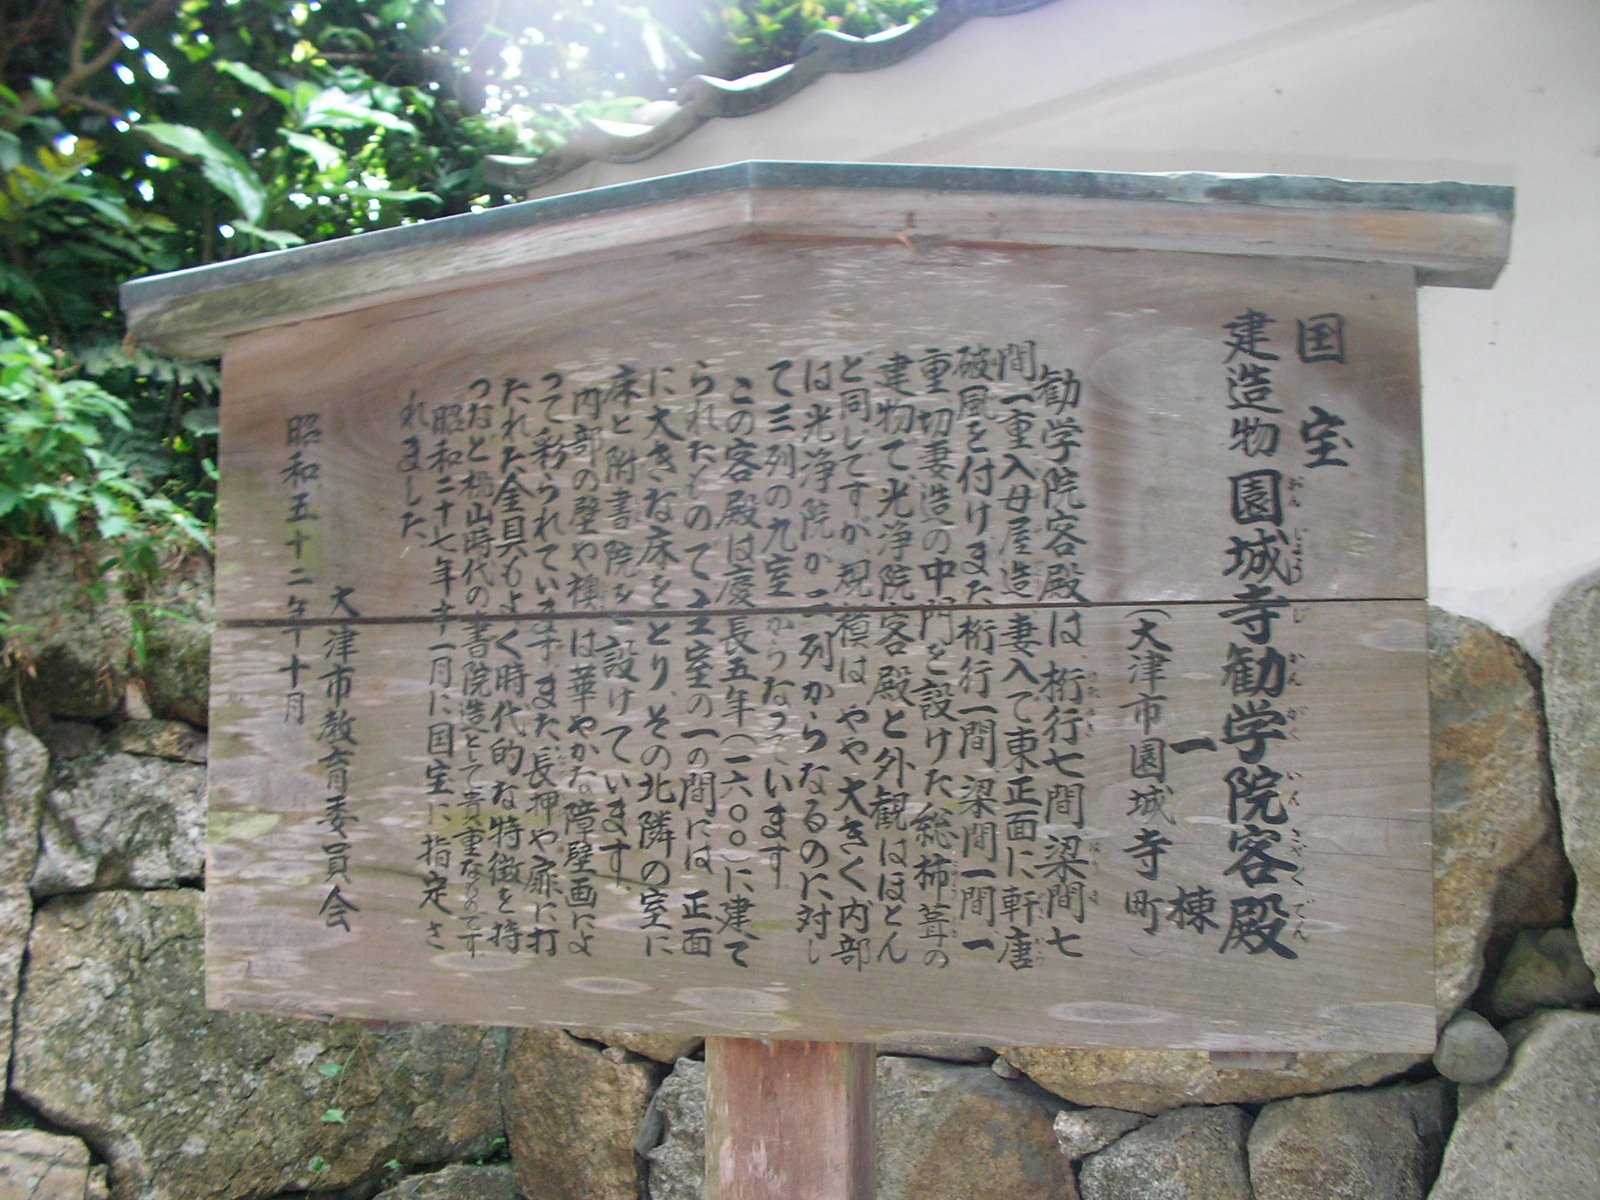 国宝
建造物 園城寺勧学院客殿
おんじょうじかんがくいんきゃくでん
一棟
(大津市園城寺町
勧学院客殿は桁行七間梁間七
けたゆき はりま
間一重入母屋造妻入で東正面に軒唐
破風を付けまた桁行一間梁間一間一
重切妻造の中門を設けた総杮葺の
建物で、光浄院客殿と外観はほとん
と同してすが、規模は、やや大きく内部
は光浄院が二列からなるのに対し
て三列の九室からなっています
この客殿は慶長五年(一六〇〇)に建て
られたもので主室の一の間には、正面
に大きな床をとり、その北隣の室に
床と附書院を設けています。
内部の壁や襖は華やかな障壁画によ
って彩られています。また長押や扉に打
たれた金具もよく時代的な特徴を持
つなど桃山時代の書院造として貴重なものです
昭和二十七年十一月に国宝に指定さ
れました
大津市教育委員会
昭和五十二年十月